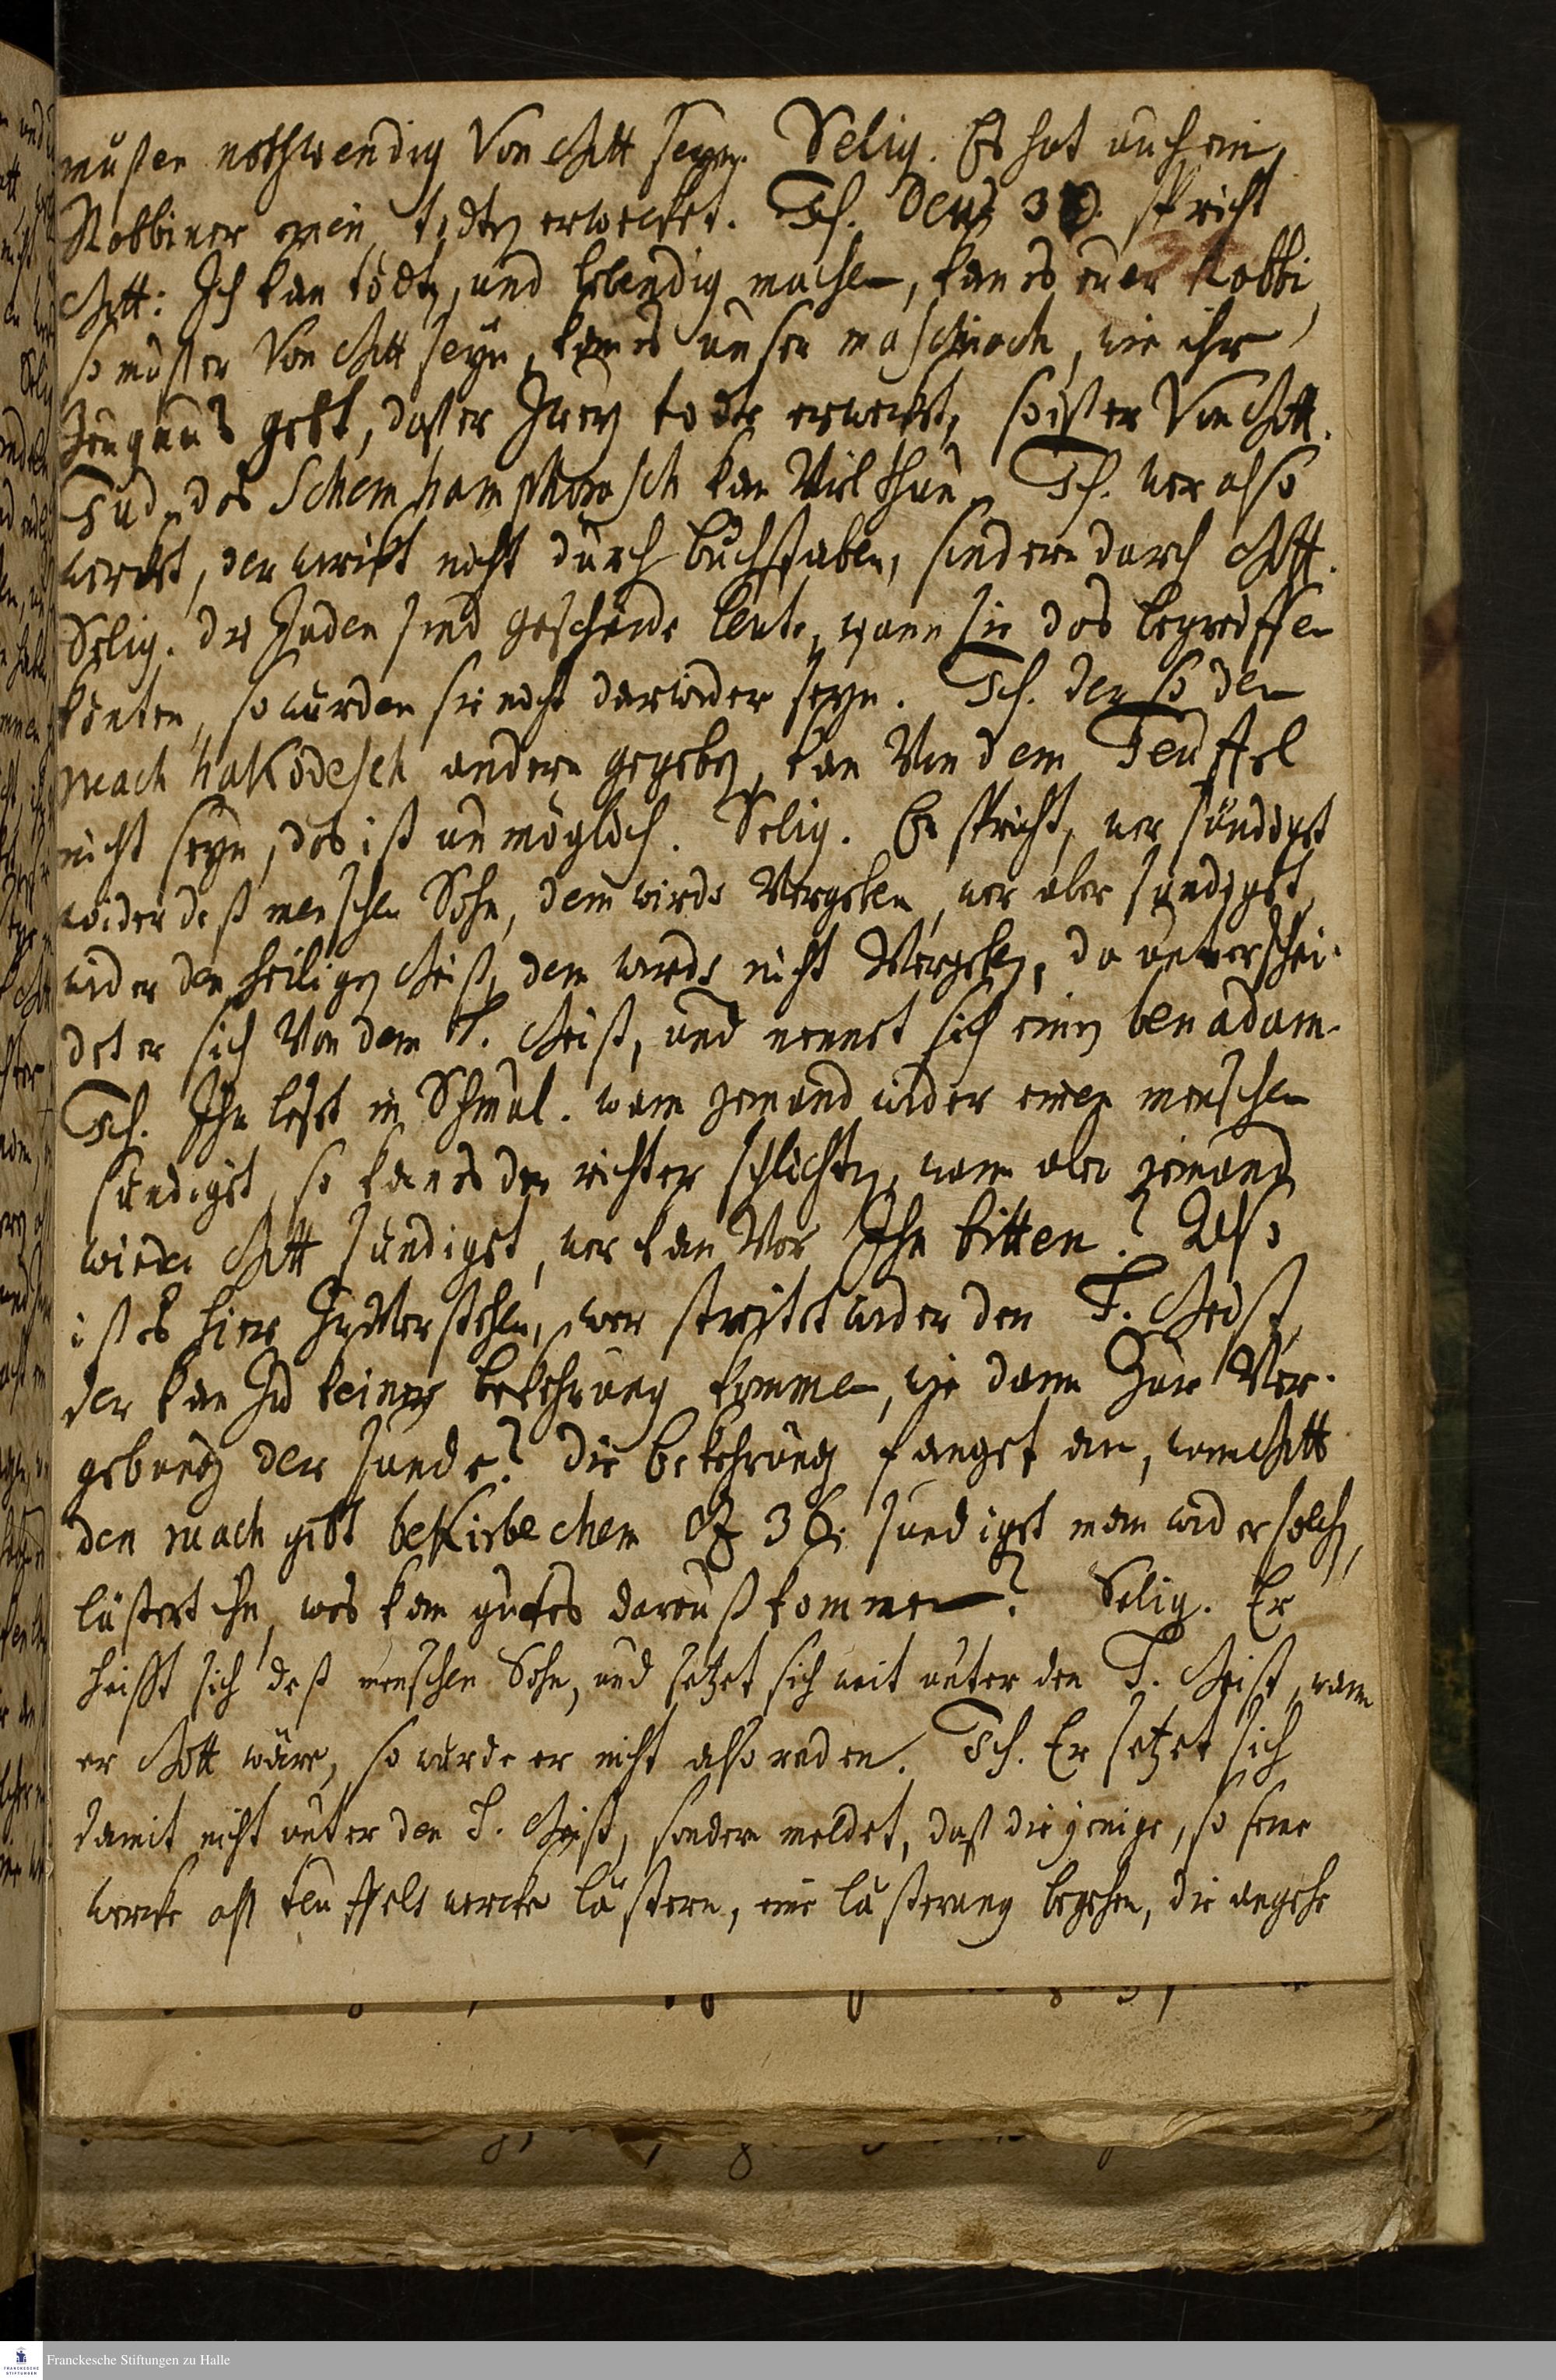 müßen nothwendig Von Gott seyn. Selig. Es hat auch ein
Rabbiner einen todten erwecket. Ich. Deut 30. spricht
Gott: Ich kan tödten, und lebendig machen, kan es euer Rabbi,
so müst er Von Gott seyn, kan es unser maschiach, wie ihr
Zeugnus gebt, daß er Zwey todte erweckt, so ist er Von Gott.
Jud. das Schem hamphorasch kan Viel thun. Ich. wer also
werckt, der wirckt nicht durch buchstaben, sondern durch Gott.
Selig. die Juden sind gescheide leute, wann sie das begreiffen
könten, so würden sie nicht darwider seyn. Ich. der so den
ruach haKodesch andern gegeben, kan Von dem Teuffel
nicht seyn, das ist unmöglich. Selig. Er spricht, wer sündiget
wider deß menschen Sohn, dem wirds Vergeben, wer aber sündiget
wider den heiligen Geist, dem wirds nicht Vergeben, da unterschei-
det er sich Von dem H. Geist, und nennet sich einen ben adam.
Ich. Ihr leset in Schmuel. wann jemand wider einen menschen
sündiget, so kan es der richter schlichten, wann aber jemand
wieder Gott sündiget, wer kan Vor Ihn bitten? Also
ist es hier Zu Verstehen, wer streitet wider den H. Geist,
der kan Zu keiner bekehrung kommen, wie dann Zur Ver-
gebung der sünde? die bekehrung fanget an, wann Gott
den ruach gibt beKirbechem Ez 36. sündiget man wider solchen,
lästert ihn, was kan gutes darauß kommen? Selig. Er
heisst sich deß menschen Sohn, und setzet sich weit unter den H. Geist, wann
er Gott wäre, so würde er nicht also reden. Ich. Er setzet sich
damit nicht unter den H. Geist, sondern meldet, daß diejenige, so seine
wercke alß teuffels wercke lästern, eine lästerung begehen, die angehe
Franckesche Stiftungen zu Halle